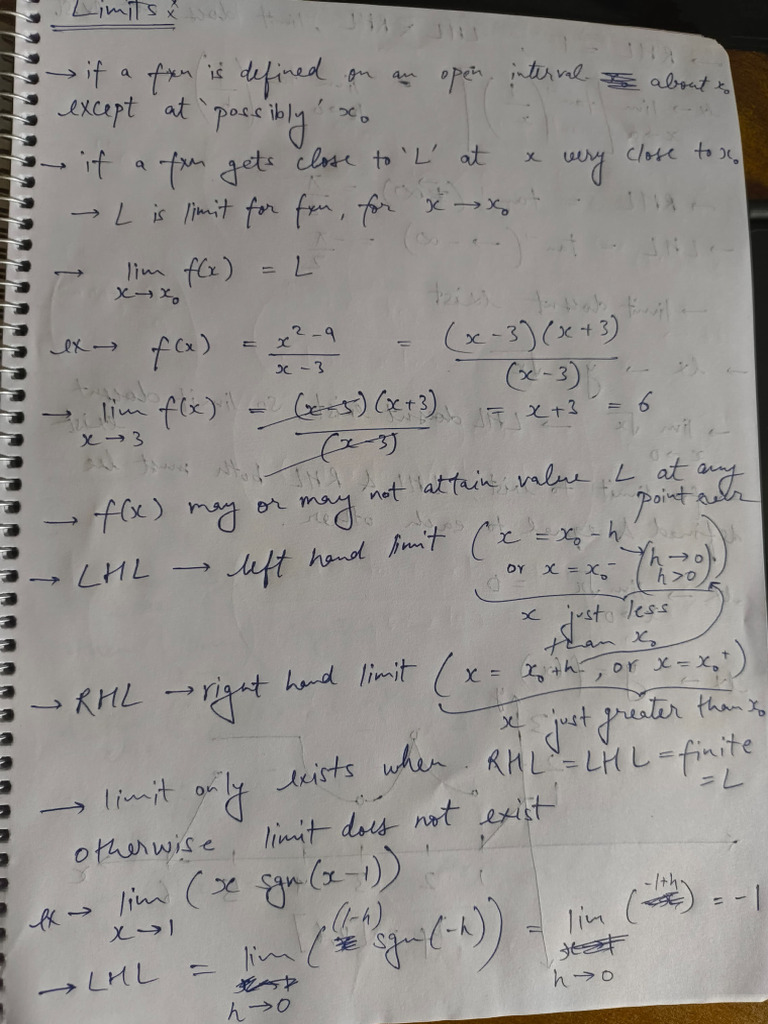 Limits
→ if a fxn is defined on an open interval about x₀
except at 'possibly' x₀
→ if a fxn gets close to 'L' at x very close to x₀
→ L is limit for fxn, for x → x₀
→ lim x→x₀ f(x) = L
ex → f(x) = (x² - 9)/(x - 3) = (x - 3)(x + 3)/(x - 3)
→ lim x→3 f(x) = (x - 3)(x + 3)/(x - 3) = x + 3 = 6
→ f(x) may or may not attain value L at any
point near
→ LHL → left hand limit (x = x₀ - h (h → 0, h > 0)
or x = x₀⁻)
x just less
than x₀
→ RHL → right hand limit (x = x₀ + h, or x = x₀⁺)
x just greater than x₀
→ limit only exists when RHL = LHL = finite
= L
otherwise limit does not exist
ex → lim x→1 (x sgn(x - 1))
→ LHL = lim h→0 ((1-h) sgn(-h)) = lim h→0 (-1+h) = -1